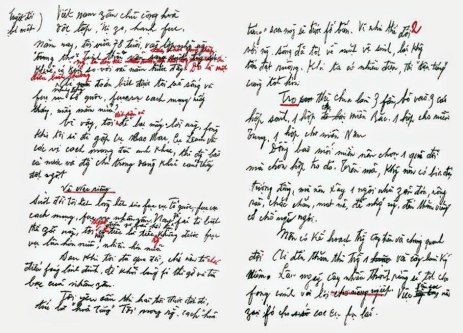 Tuyệt đối
bí mật
Việt nam zân chủ cộng hoà
Độc lập, tự zo, hạnh fúc
Năm nay, tôi vừa 78 tuổi, vào lớp những người
"trung thọ". Tinh thần
khoẻ có kém so với vài năm trước đây
Ai mà đoán biết được tôi còn sống và
fục vụ tổ quốc, fục vụ cách mạng mấy
tháng, mấy năm nữa?
Vì vậy, tôi để lại mấy lời này, fòng
khi tôi sẽ đi gặp cụ Các Mác, cụ Lênin và
các vị cách mạng đàn anh khác, thì đồng bào
cả nước và đồng chí trong Đảng khỏi cảm thấy
đột ngột
Về việc riêng
Suốt đời tôi hết lòng hết sức fục vụ tổ quốc, fục vụ
cách mạng, fục vụ nhân zân. Nay zù fải từ biệt
thế zới này, tôi tiếc là tiếc rằng không được fục
vụ lâu hơn nữa, nhiều hơn nữa.
Sau khi tôi đã qua đời, chớ nên tổ chức
điếu fúng linh đình, để khỏi lãng fí thì giờ và tiền
bạc của nhân zân.
Tôi yêu cầu thi hài tôi được đốt đi,
tức là "hoả táng". Tôi mong rằng cách hoả
2
táng" sau này sẽ được fổ biến. Vì như thế đối
với người sống đã tốt về mặt vệ sinh, lại không
tốn đất ruộng. Khi ta có nhiều điện, thì "điện táng"
càng tốt hơn.
Tro thì chia làm 3 fần, bỏ vào 3 cái
hộp sành, 1 hộp cho miền Bắc. 1 hộp cho miền
Trung, 1 hộp cho miền Nam
Đồng bào mỗi miền nên chọn 1 quả đồi
mà chôn hộp tro đó. Trên mả, không nên có bia đá
tượng đồng, mà nên xây 1 ngôi nhà zản đơn, rộng
rãi, chắc chắn, mát mẻ, để những người đến thăm viếng
có chỗ nghỉ ngơi.
Nên có kế hoạch trồng cây trên và chung quanh
đồi. Ai đến thăm thì trồng cây làm kỷ
niệm. Lâu ngày, cây nhiều thành rừng sẽ tốt cho
fong cảnh và lợi cho nông nghiệp. Việc săn sóc nên
zao fó cho các cụ fụ lão.